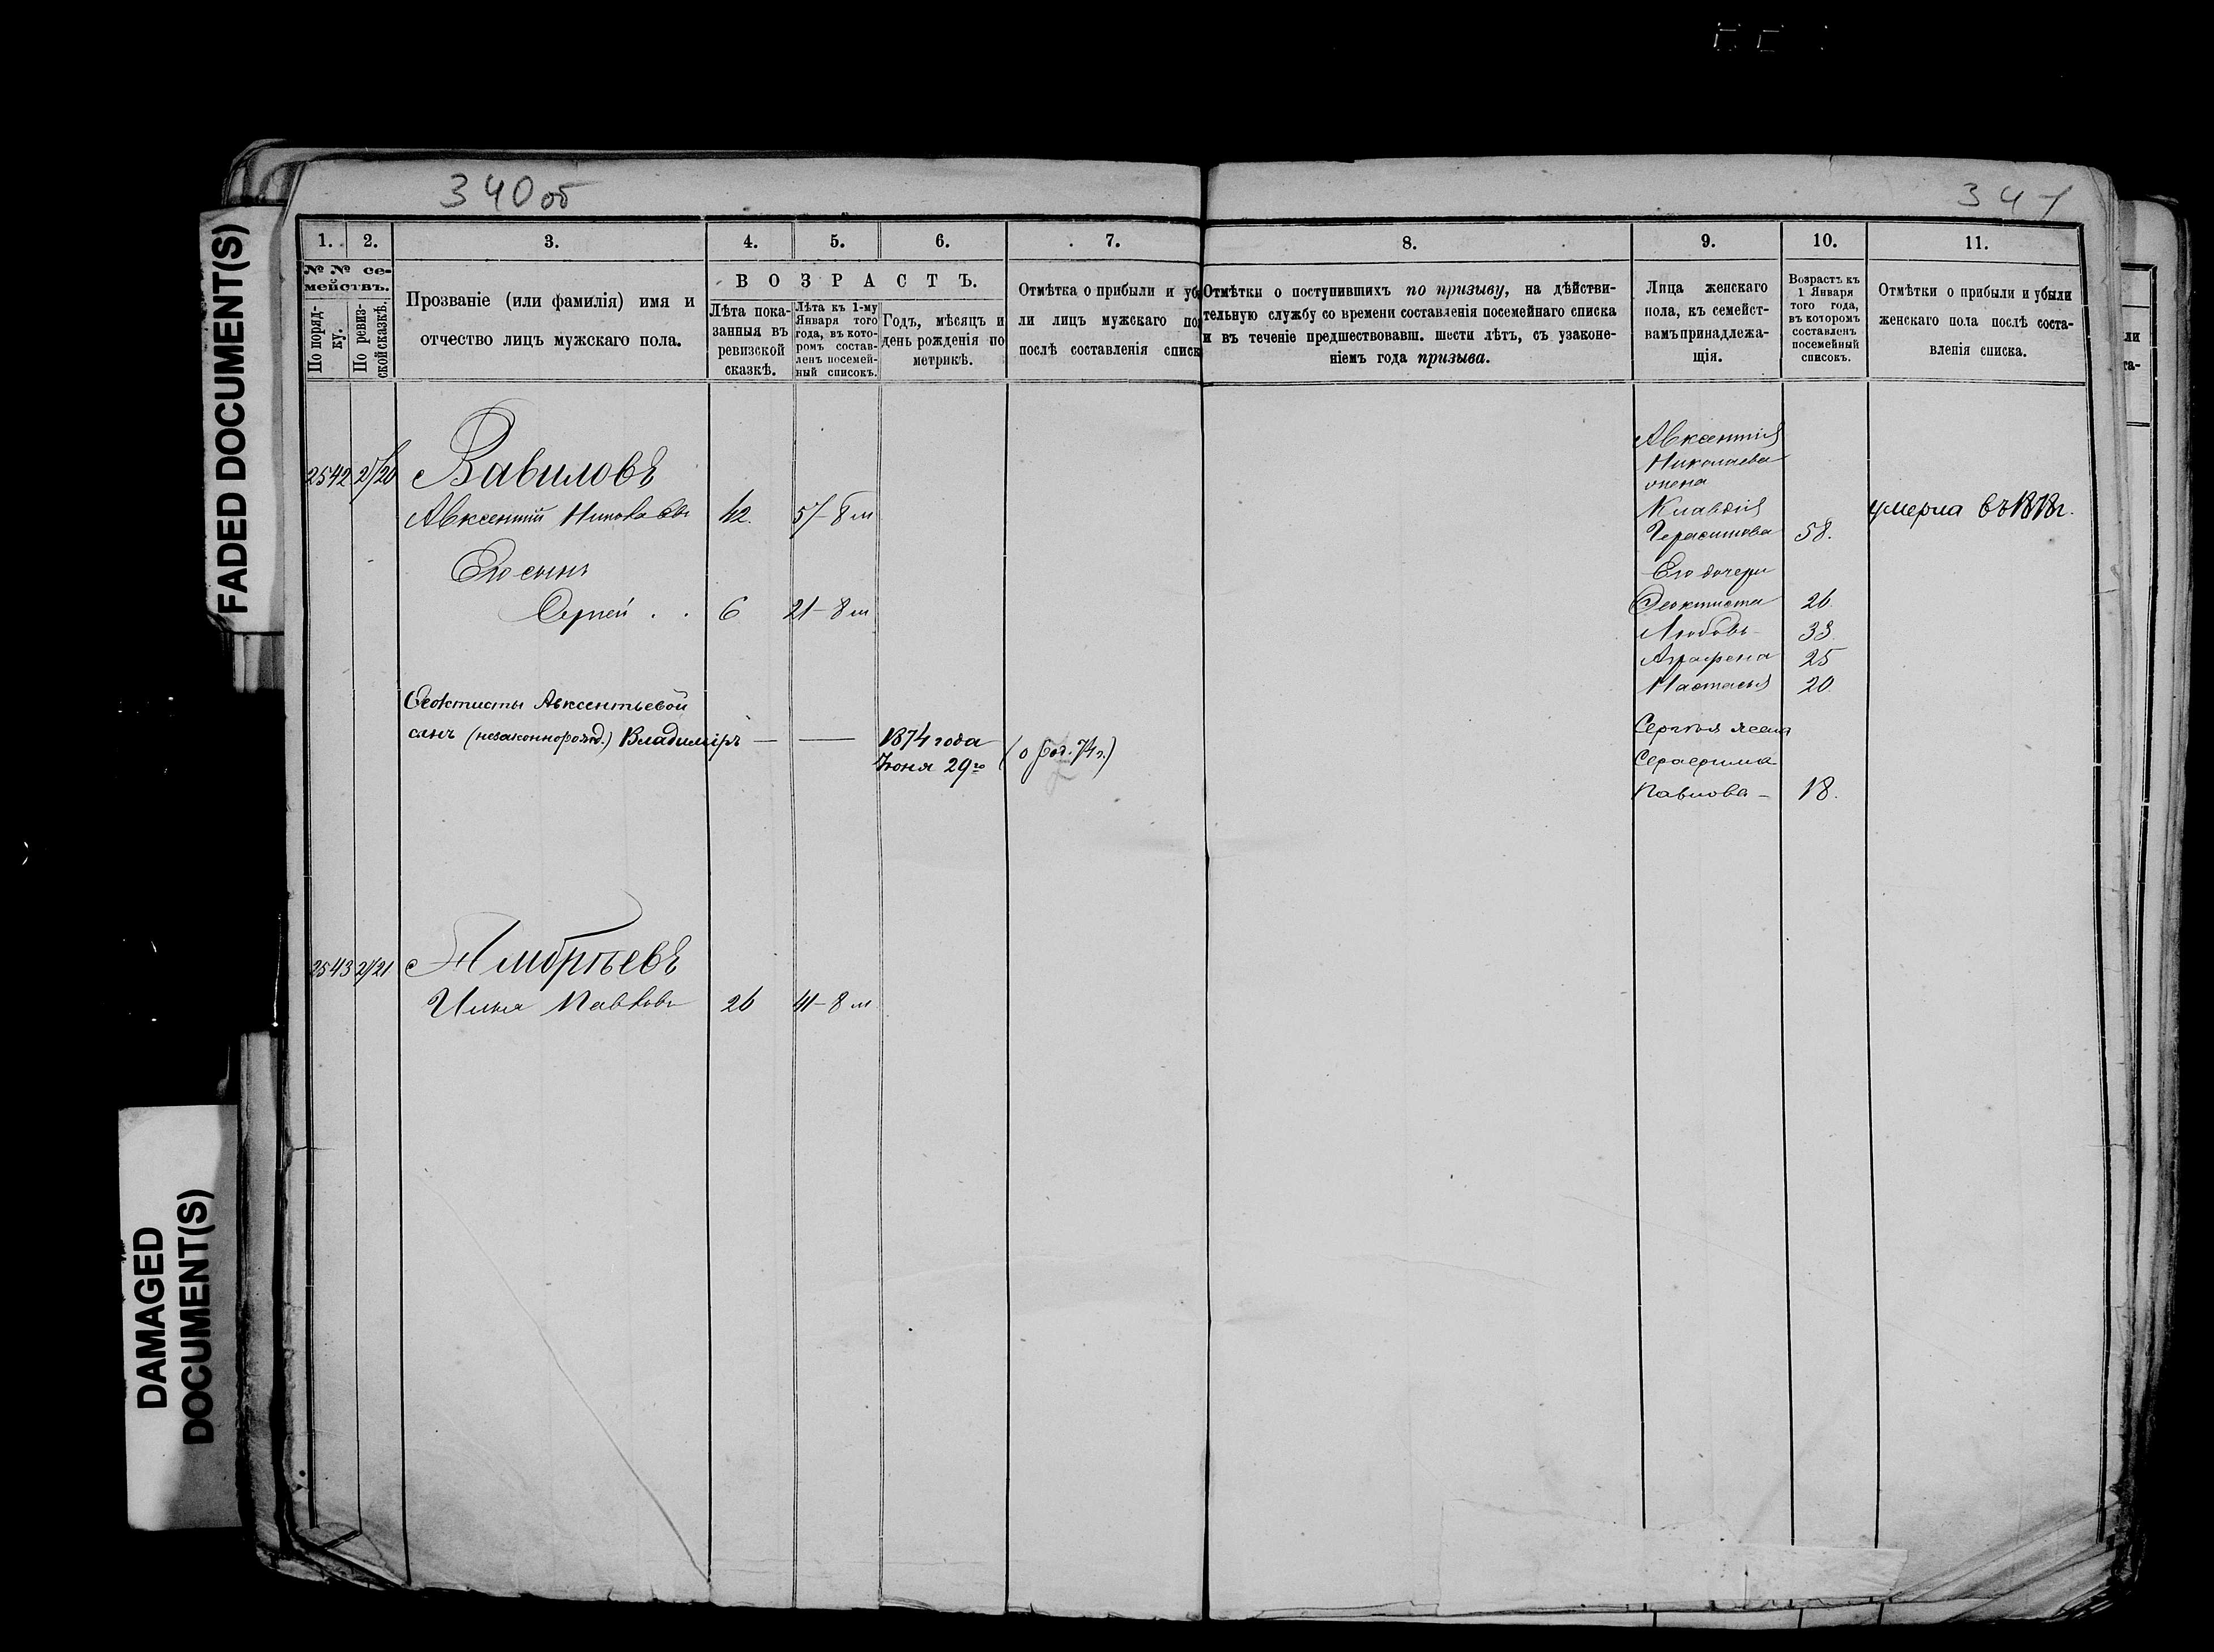 340 об
341
FADED DOCUMENT(S)
DAMAGED DOCUMENT(S)
1. 2. 3. 4. 5. 6. 7. 8. 9. 10. 11.
№ № се-
мействъ.
По поряд-
ку.
По ревиз-
ской сказкѣ.
Прозваніе (или фамилія) имя и
отчество лицъ мужскаго пола.
ВОЗРАСТЪ.
Лѣта пока-
занныя въ
ревизской
сказкѣ.
Лѣта къ 1-му
Января того
года, въ кото-
ромъ состав-
ленъ посемей-
ный списокъ.
Годъ, мѣсяцъ и
день рожденія по
метрикѣ.
Отмѣтка о прибыли и уб
ли лицъ мужскаго по
послѣ составленія списк
Отмѣтки о поступившихъ по призыву, на дѣйстви-
тельную службу со времени составленія посемейнаго списка
и въ теченіе предшествовавш. шести лѣтъ, съ узаконе-
ніемъ года призыва.
Лица женскаго
пола, къ семейст-
вамъ принадлежа-
щія.
Возрастъ къ
1 Января
того года,
въ которомъ
составленъ
посемейный
списокъ.
Отмѣтки о прибыли и убыли
женскаго пола послѣ соста-
вленія списка.
2542 21/20 Вавиловъ
Авксентій Николаевъ 42. 57-8 м
Его сынъ
Сергей . . 6 21-8 м
Феоктисты Авксентьевой
сынъ (незаконнорожд.) Владиміръ — — 1874 года
Іюня 29го (о рож. 74 г.)
Авксентія
Николаева
жена
Клавдія умерла въ 1878 г.
Герасимова 58.
Его дочери
Феоктиста 26.
Любовь 33.
Аграфена 25
Настасья 20.
Сергѣя жена
Серафима
Павлова - 18.
2543 21/21 Амбргъевъ
Илья Павловъ 26 41-8 м